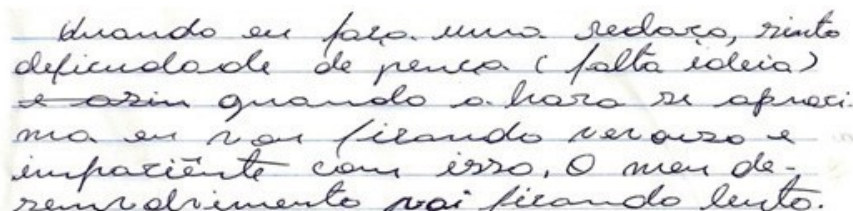 Quando eu faço uma redaço, sinto
deficuldade de pença (falta ideia)
e asin quando a hora se aproci-
ma eu vou ficando nervouzo e
impaciênte com isso, O meu de-
senvolvimento vai ficando lento.